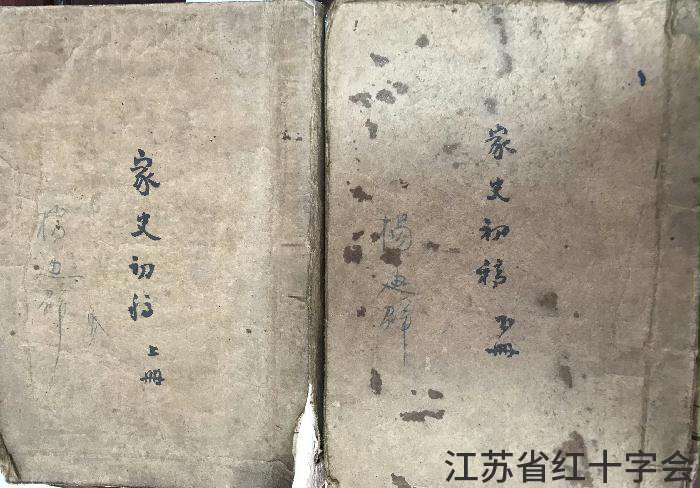 家史初稿
上册
楊迪群
家史初稿
下册
楊迪群
江苏省红十字会